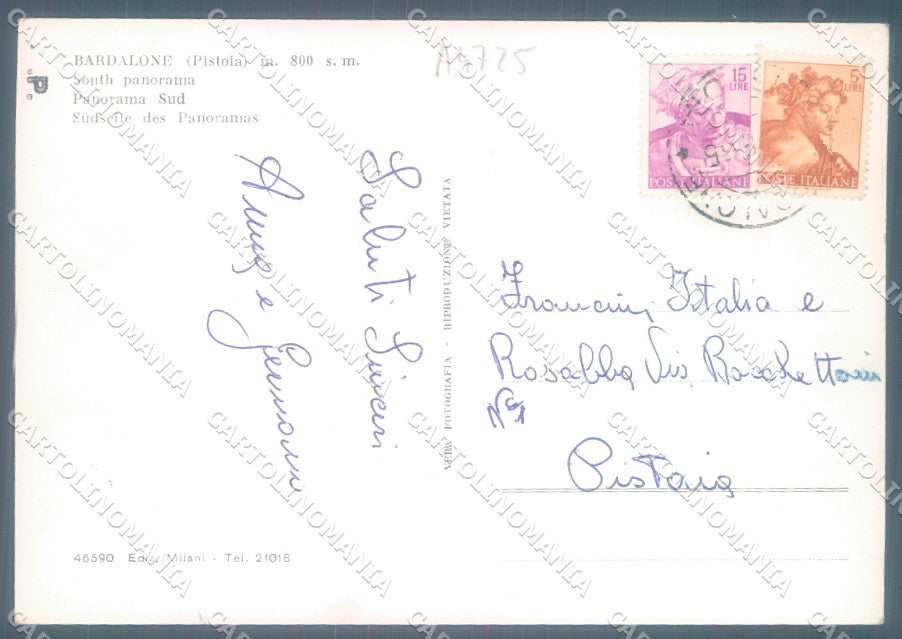 BARDALONE (Pistoia) m. 800 s. m.
South panorama
Panorama Sud
Südseite des Panoramas
A4725
15
LIRE
POSTE ITALIANE
5
LIRE
POSTE ITALIANE
Saluti Sinceri
Anna e
VERA FOTOGRAFIA - RIPRODUZIONE VIETATA
Italia e
Rosalba Via Boschettoni
N° 1
Pistoia
46590 Ediz. Milani - Tel. 21018
CARTOLINOMANIA